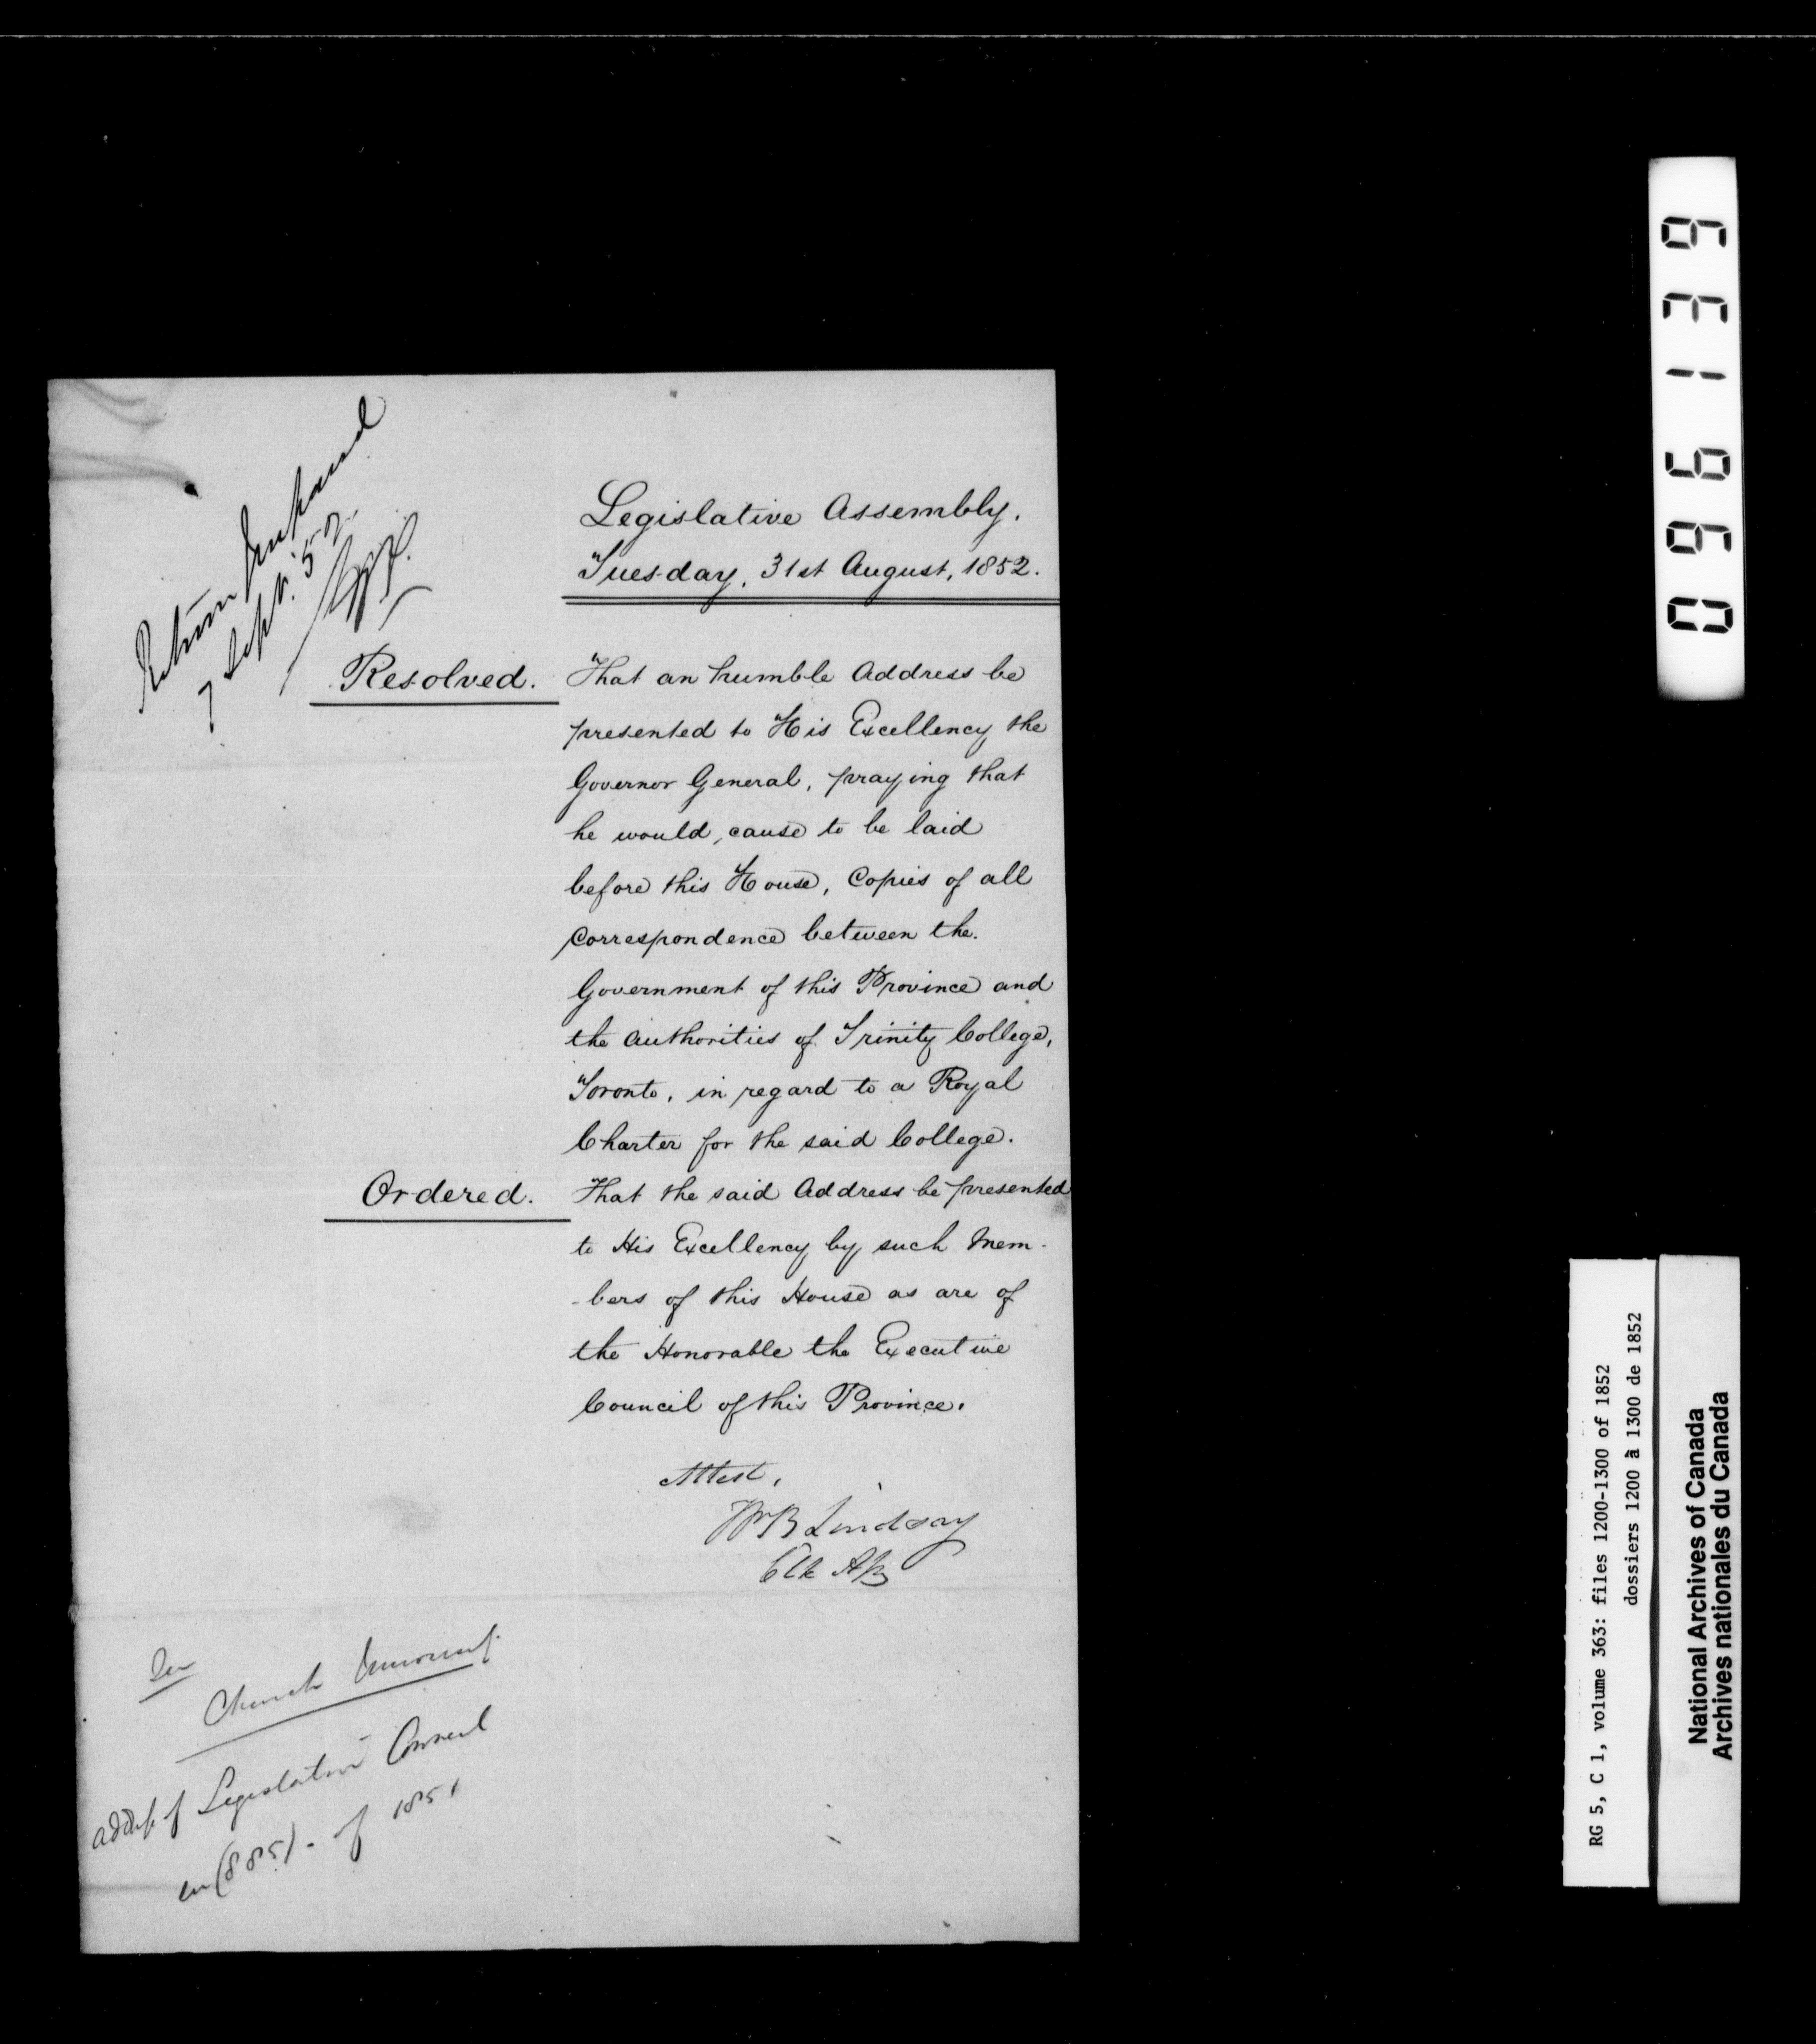 Return prepared
7 Sept. '52.
Legislative Assembly.
Tuesday, 31st August, 1852.
Resolved. That an humble Address be
presented to His Excellency the
Governor General, praying that
he would, cause to be laid
before this House, Copies of all
Correspondence between the.
Government of this Province and
the authorities of Trinity College,
Toronto, in regard to a Royal
Charter for the said College.
Ordered. That the said Address be presented
to His Excellency by such Mem-
-bers of this House as are of
the Honorable the Executive
Council of this Province.
Attest,
Wm B Lindsay
Clk Assy
See
Church University
address of Legislative Council
in (885) - of 1851
096139
RG 5, C 1, volume 363: files 1200-1300 of 1852
dossiers 1200 à 1300 de 1852
National Archives of Canada
Archives nationales du Canada